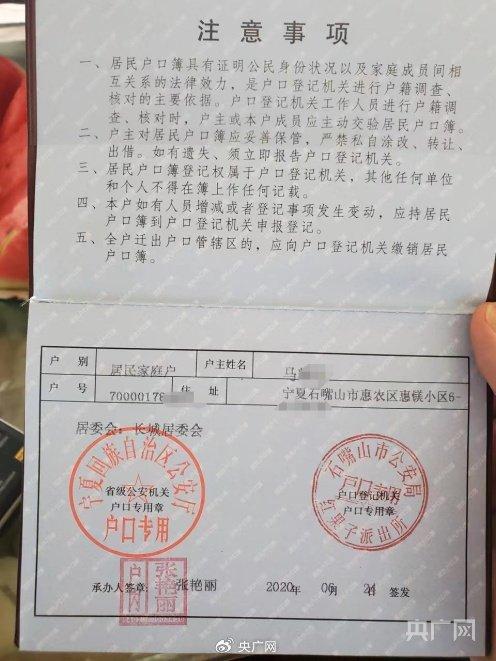 注意事项
一、居民户口簿具有证明公民身份状况以及家庭成员间相
互关系的法律效力，是户口登记机关进行户籍调查、
核对的主要依据。户口登记机关工作人员进行户籍调
查、核对时，户主或本户成员应主动交验居民户口簿。
二、户主对居民户口簿应妥善保管，严禁私自涂改、转让、
出借。如有遗失、须立即报告户口登记机关。
三、居民户口簿登记权属于户口登记机关，其他任何单位
和个人不得在簿上作任何记载。
四、本户如有人员增减或者登记事项发生变动，应持居民
户口簿到户口登记机关申报登记。
五、全户迁出户口管辖区的，应向户口登记机关缴销居民
户口簿。
户 别 居民家庭户 户主姓名 马
户 号 70000178 住 址 宁夏石嘴山市惠农区惠镁小区6-
居委会：长城居委会
宁夏回族自治区公安厅
省级公安机关
户口专用章
户口专用
石嘴山市公安局
户口专用
户口登记机关
户口专用章
红果子派出所
张艳丽
承办人签章：张艳丽 2020年 06月 24日 签发
央广网
央广网